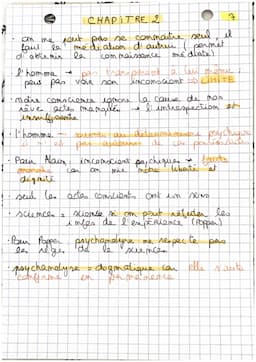 CHAPITRE 2 7
- on ne peut pas se connaitre seul, il
faut la médiation d'autrui (permet
d'obtenir la connaissance médiate)
l'homme → pas transparent à lui même,
peut pas voir son inconscient → LIMITE
- notre conscience ignore la cause de nos
actes manqués → l'introspection est
insuffisante
- l'homme → soumis au déterminisme psychique
- Pour Alain, inconscient psychique →
car on nie notre liberté et
dignité
- seul les actes conscients ont un sens
- science = science si on peut réfuter les
de l'expérience (Popper)
- Pour Popper psychanalyse ne respecte pas
les règles de la science
- psychanalyse = dogmatique car elle s'auto
confirme en permanence